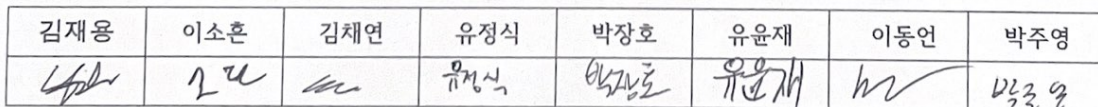 김재용 이소흔 김채연 유정식 박장호 유윤재 이동언 박주영
유정식 박장호 유윤재 박주영